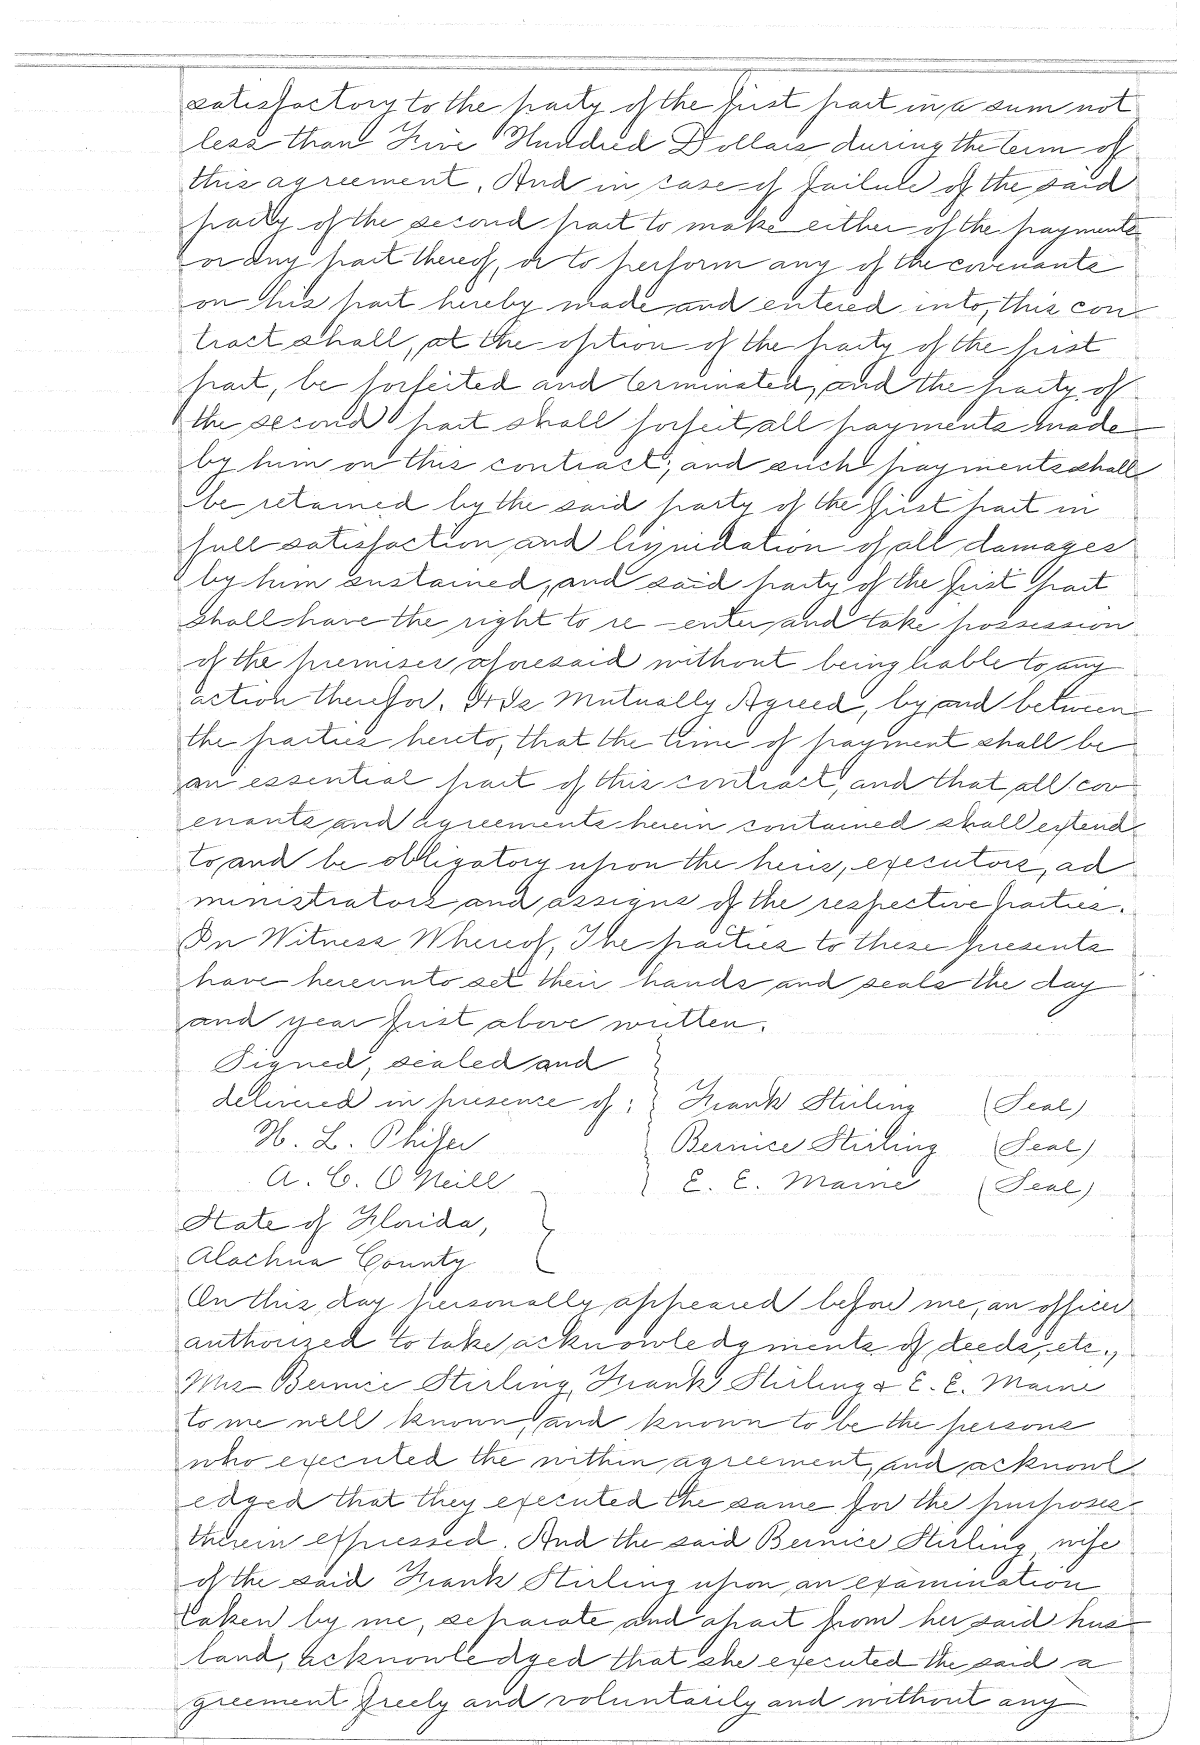 satisfactory to the party of the first part in a sum not
less than Five Hundred Dollars during the term of
this agreement. And in case of failure of the said
party of the second part to make either of the payments
or any part thereof, or to perform any of the covenants
on his part hereby made and entered into, this con
tract shall, at the option of the party of the first
part, be forfeited and terminated, and the party of
the second part shall forfeit all payments made
by him on this contract; and such payments shall
be retained by the said party of the first part in
full satisfaction and liquidation of all damages
by him sustained, and said party of the first part
shall have the right to re-enter and take possession
of the premises aforesaid without being liable to any
action therefor. It Is Mutually Agreed, by and between
the parties hereto, that the time of payment shall be
an essential part of this contract, and that all cov
enants and agreements herein contained shall extend
to and be obligatory upon the heirs, executors, ad
ministrators and assigns of the respective parties.
In Witness Whereof, The parties to these presents
have hereunto set their hands and seals the day
and year first above written.
Signed, sealed and
delivered in presence of: Frank Stirling (Seal)
H. L. Phifer Bernice Stirling (Seal)
A. C. O'Neill E. E. Maine (Seal)
State of Florida,
Alachua County
On this day personally appeared before me, an officer
authorized to take acknowledgments of deeds, etc.,
Mrs Bernice Stirling, Frank Stirling & E. E. Maine
to me well known, and known to be the persons
who executed the within agreement, and acknowl
edged that they executed the same for the purposes
therein expressed. And the said Bernice Stirling wife
of the said Frank Stirling upon an examination
taken by me, separate and apart from her said hus
band, acknowledged that she executed the said a
greement freely and voluntarily and without any